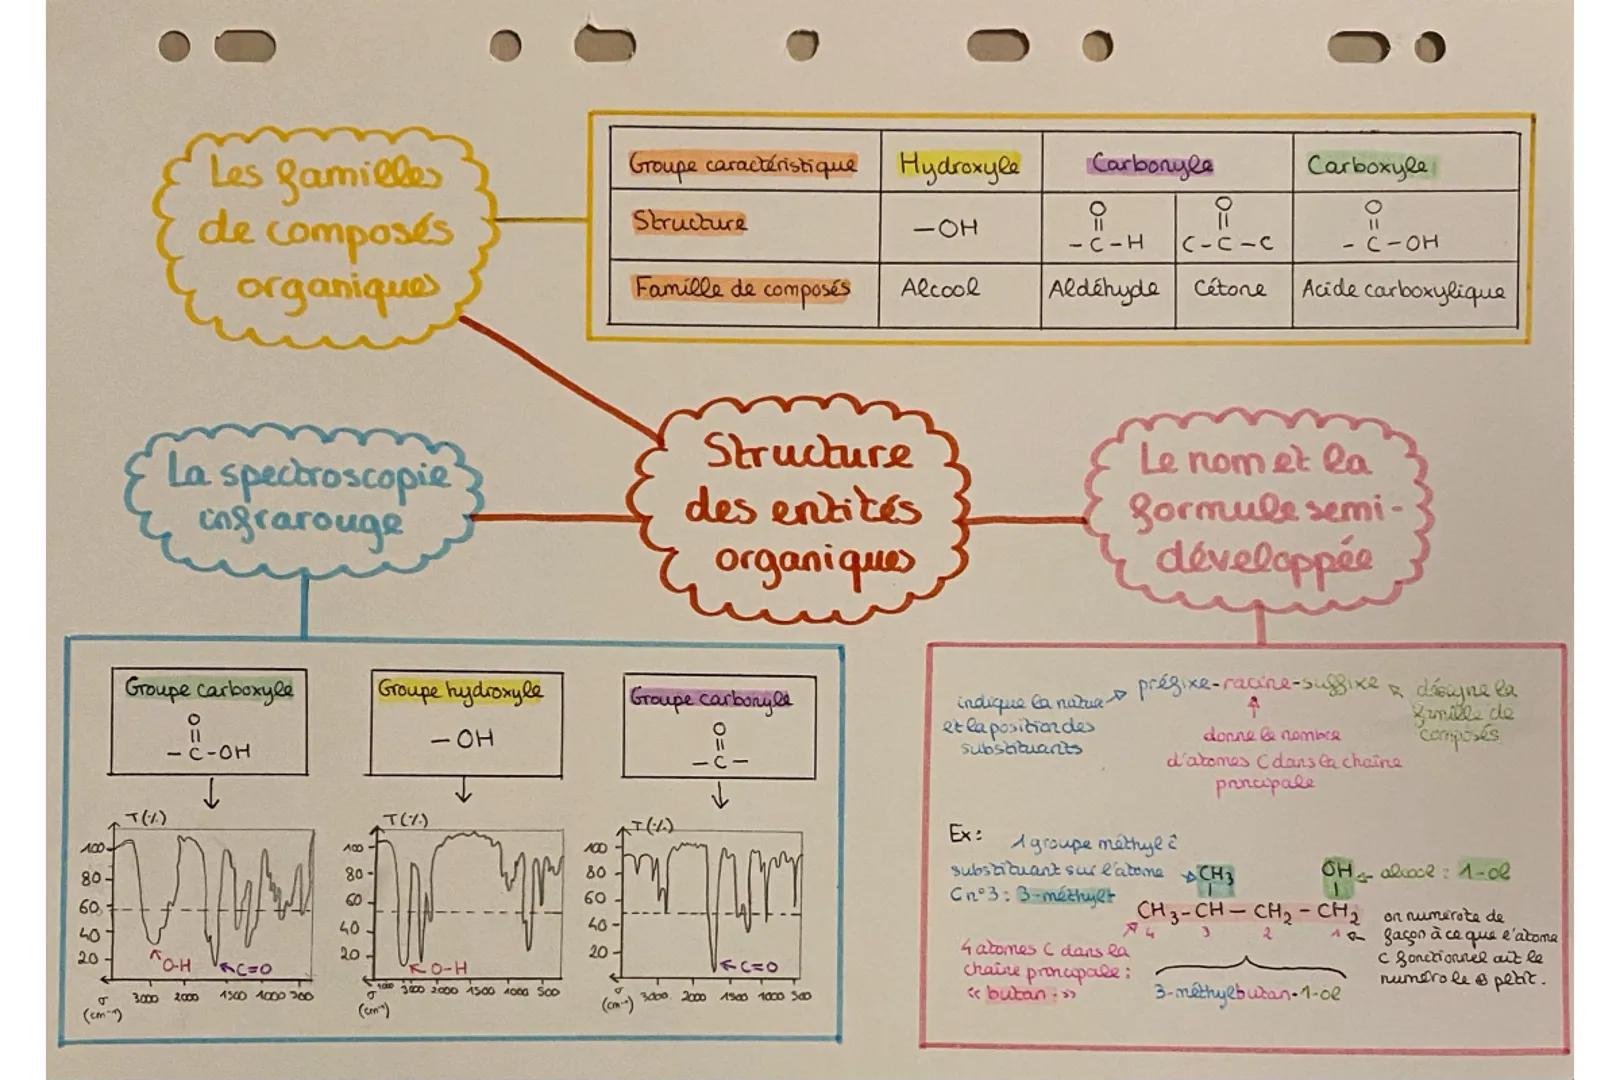 Les familles
de composés
organiques
Groupe caractéristique Hydroxyle Carbonyle Carboxyle
Structure -OH O || -C-H O || C-C-C O || -C-OH
Famille de composés Alcool Aldéhyde Cétone Acide carboxylique
Structure
des entités
organiques
La spectroscopie
infrarouge
Le nom et la
formule semi-
développée
Groupe carboxyle
O
||
-C-OH
T(%)
100
80
60
40
20
O-H
C=O
3000 2000 1500 1000 500
σ
(cm⁻¹)
Groupe hydroxyle
-OH
T(%)
100
80
60
40
20
O-H
4000 3000 2000 1500 1000 500
σ
(cm⁻¹)
Groupe carbonyle
O
||
-C-
T(%)
100
80
60
40
20
C=O
3000 2000 1500 1000 500
σ
(cm⁻¹)
préfixe-racine-suffixe
indique la nature
et la position des
substituants
donne le nombre
d'atomes C dans la chaîne
principale
désigne la
famille de
composés
Ex:
1 groupe méthyl ê
substituant sur l'atome
C n°3: 3-méthyl
CH₃
|
OH
|
alcool : 1-ol
CH₃-CH-CH₂-CH₂
4 3 2 1
4 atomes C dans la
chaîne principale :
« butan- »
on numérote de
façon à ce que l'atome
C fonctionnel ait le
numéro le ⊕ petit.
3-méthylbutan-1-ol